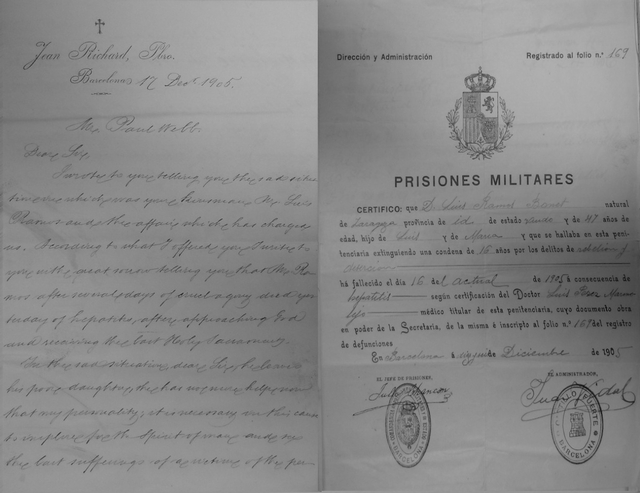 Jean Richard, Pbro.
Barcelona 17 Decr 1905.
Mr Paul Webb
Dear Sir
I wrote to you telling you the sad situa-
tion in which was your kinsman Mr Luis
Ramos and the affair which has charged
me. According to what I offered you I write to
you with great sorrow telling you that Mr Ra-
mos after several days of cruel agony died yes-
terday of hepatitis, after approaching God
and receiving the last Holy Sacraments.
In the sad situation, dear Sir, he leaves
his poor daughter, she has no more help now
that my personality; it is necessary in this case
to implore for the Spirit of
the last sufferings of a victim of the
Dirección y Administración
Registrado al folio n.º 169
PRISIONES MILITARES
CERTIFICO: que D. Luis Ramos natural
de Zaragoza provincia de id. de estado viudo y de 47 años de
edad, hijo de Luis y de Maria y que se hallaba en esta peni-
tenciaria extinguiendo una condena de 16 años por los delitos de rebelion y
desercion
ha fallecido el dia 16 del actual de 1905 á consecuencia de
hepatitis según certificación del Doctor Luis
médico titular de esta penitenciaria, cuyo documento obra
en poder de la Secretaría, de la misma é inscripto al folio n.º 169 del registro
de defunciones
En Barcelona á de Diciembre de 1905
EL JEFE DE PRISIONES,
EL ADMINISTRADOR,
Vidal
CASTILLO FUERTE
BARCELONA